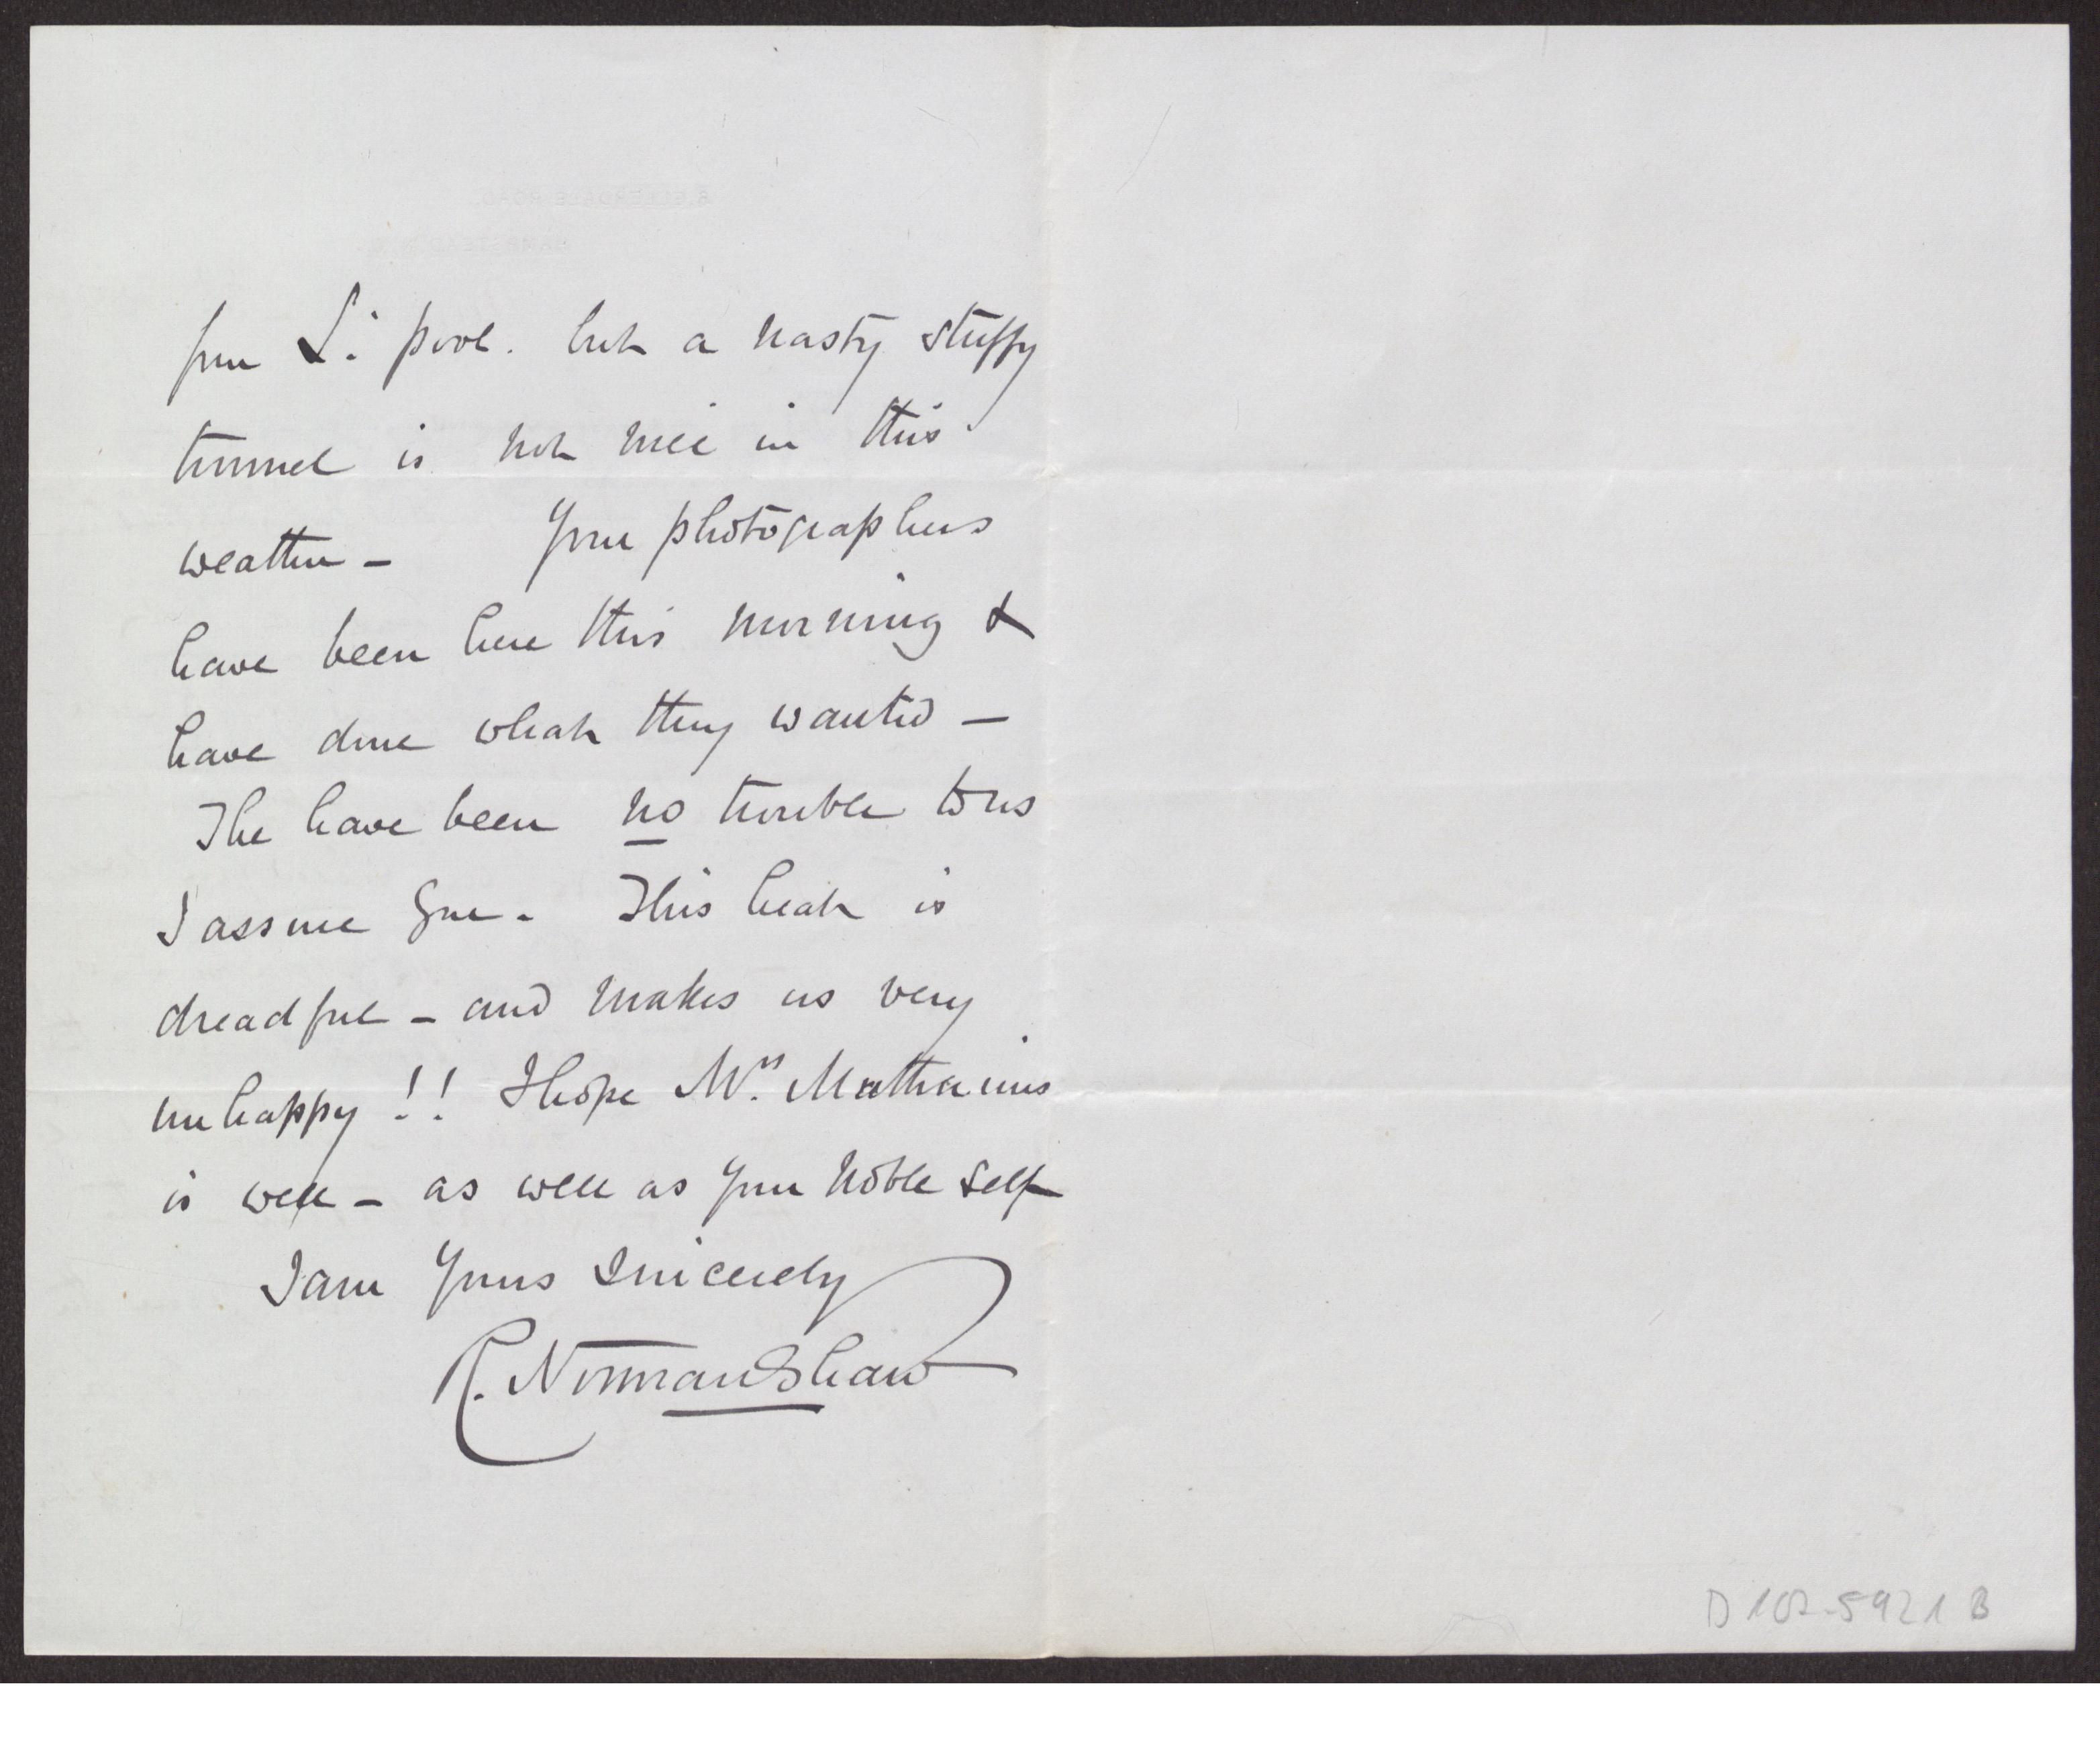 from L:pool. but a nasty stuffy
tunnel is not nice in this
weather –
Your photographers
have been here this morning &
have done what they wanted –
The have been no trouble to us
I assure you. This heat is
dreadful – and makes us very
unhappy!! I hope Mrs. Muthesius
is well – as well as your noble self
I am Yours Sincerely
R. Norman Shaw
D 102-5921 B